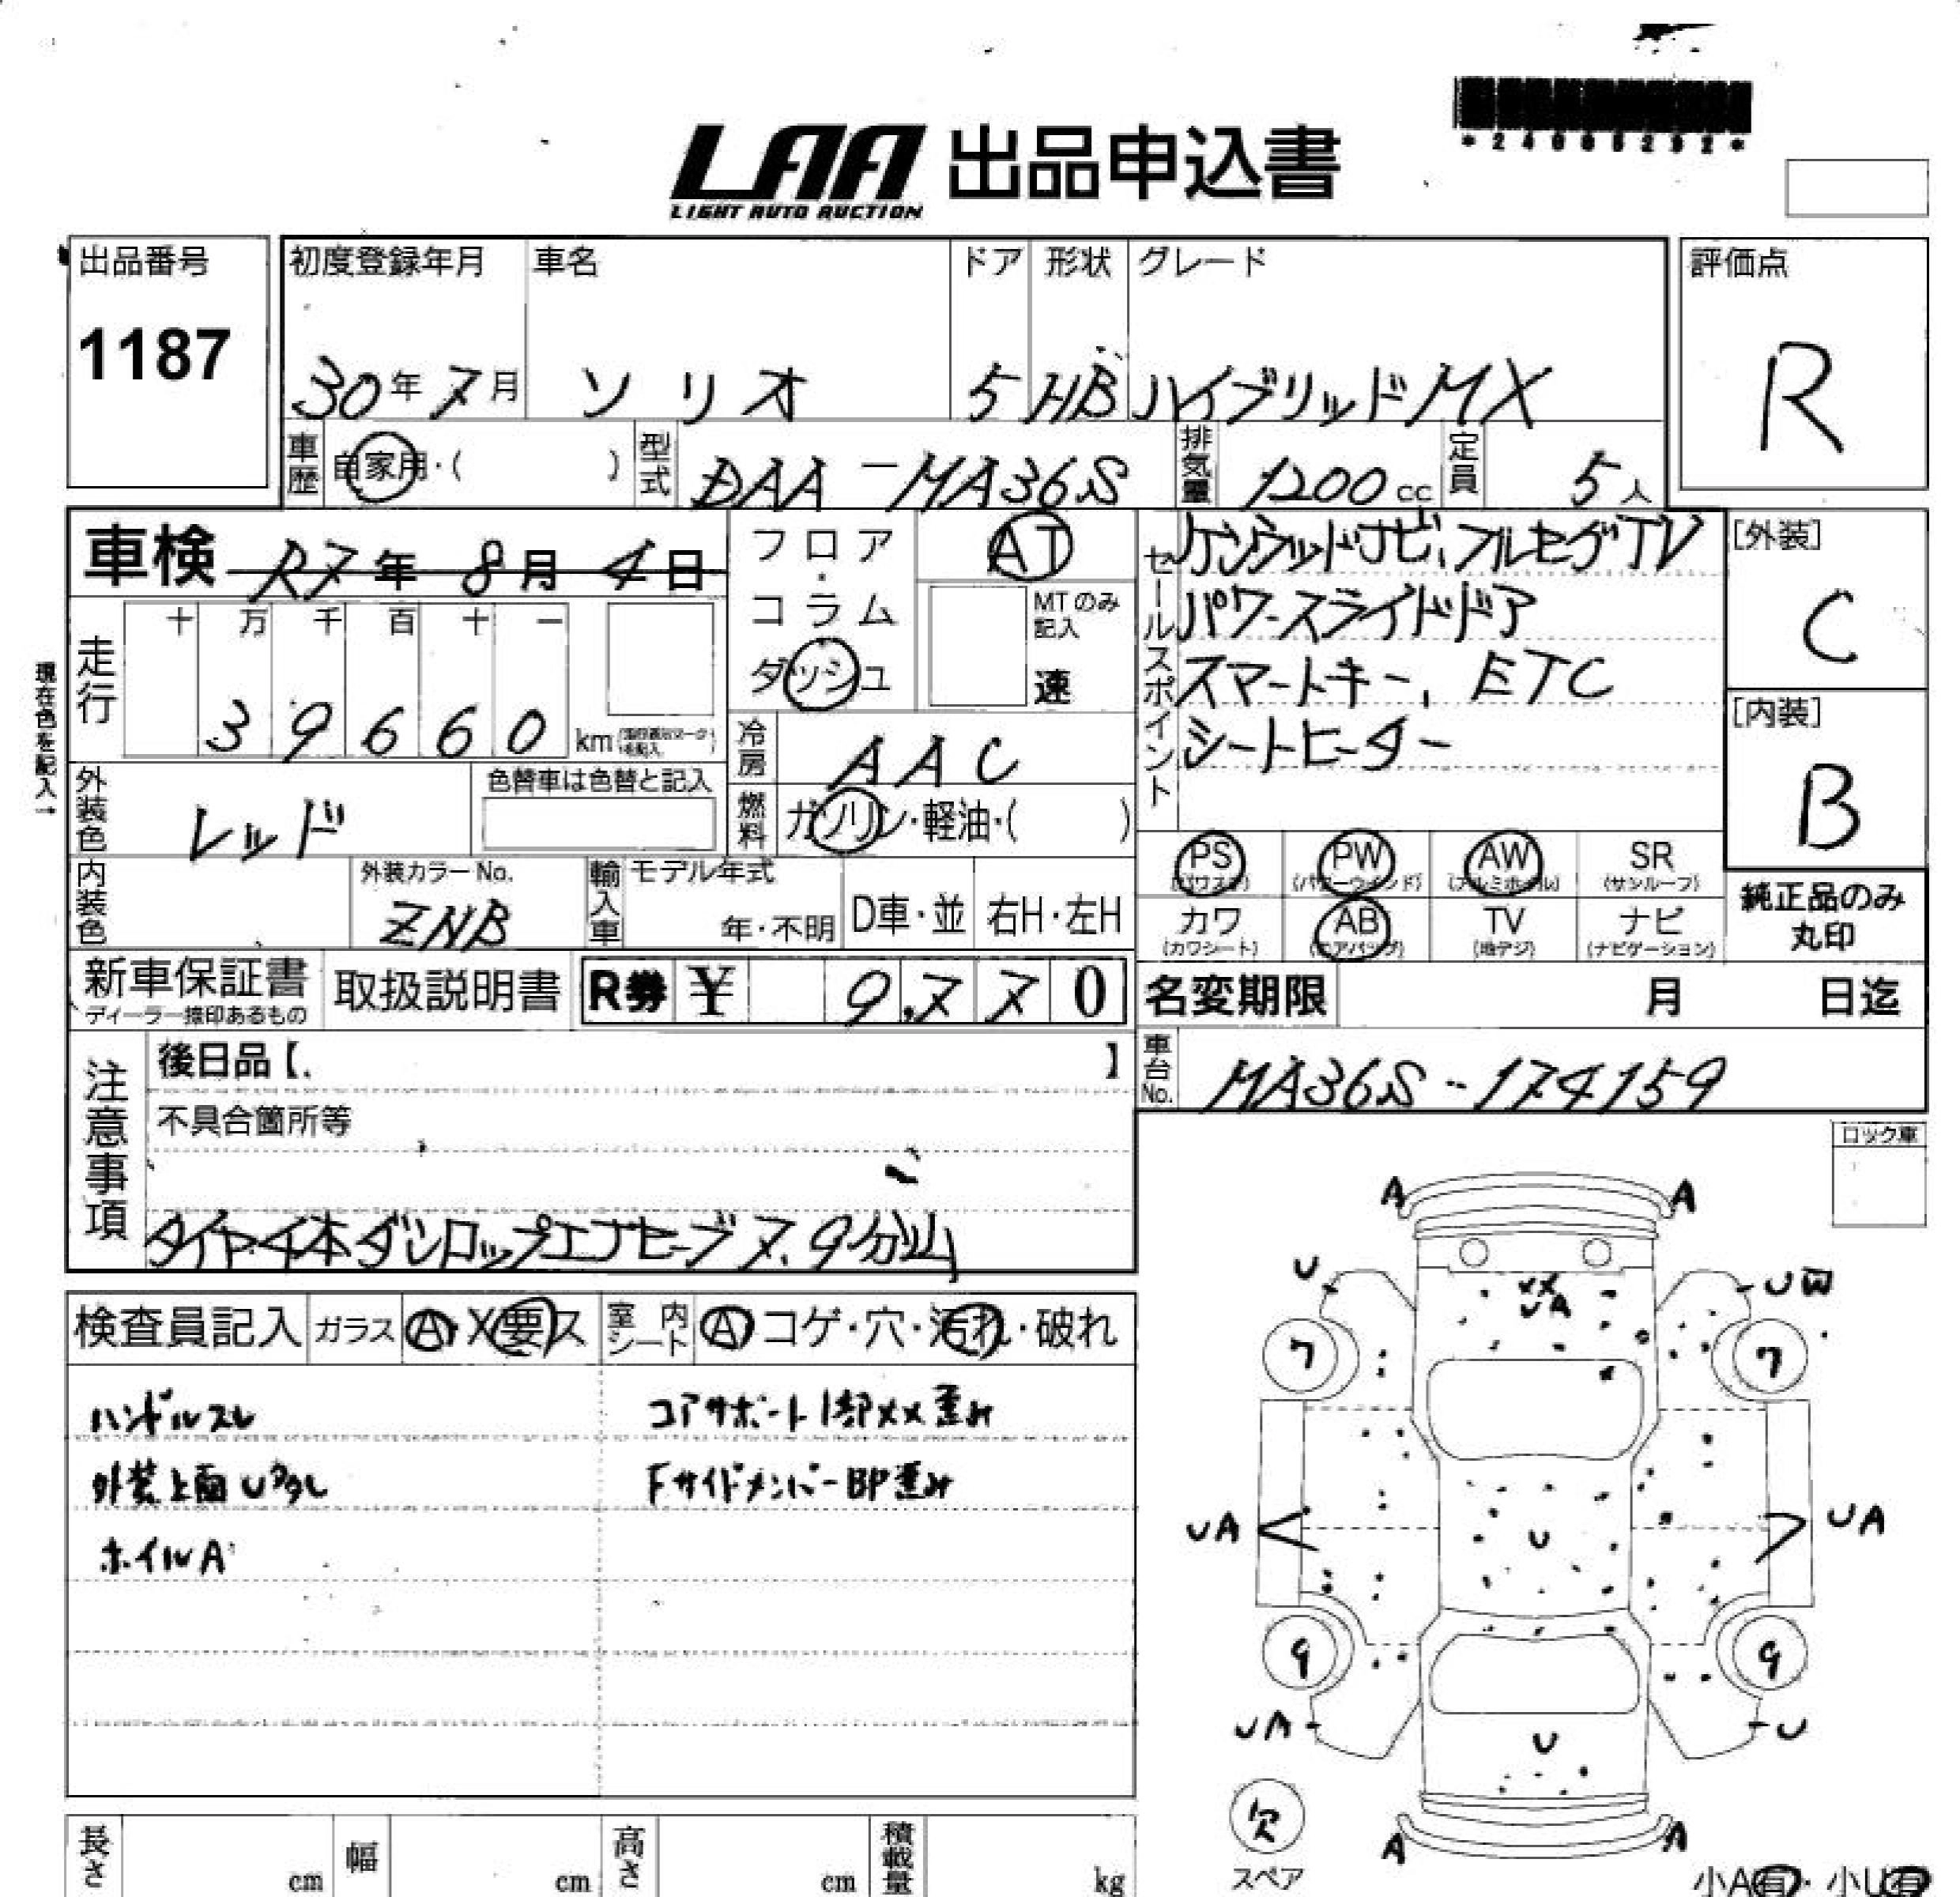 *24005292*
LAA 出品申込書
LIGHT AUTO AUCTION
出品番号
1187
初度登録年月
30年7月
車名
ソリオ
ドア
5
形状
HB
グレード
ハイブリッドMX
評価点
R
車歴
自家用・( )
型式
DAA-MA36S
排気量
1200cc
定員
5人
車検 R7年8月4日
フロア・コラム
ダッシュ
AT
MTのみ記入
速
セールスポイント
ケンウッドナビ、フルセグTV
パワースライドドア
スマートキー、ETC
シートヒーター
[外装]
C
[内装]
B
現在色を記入→
走行
十 万 千 百 十 一
3 9 6 6 0 km
冷房
AAC
外装色
レッド
色替車は色替と記入
燃料
ガソリン・軽油・( )
PS
(パワステ)
PW
(パワーウインド)
AW
(アルミホイル)
SR
(サンルーフ)
カワ
(カワシート)
AB
(エアバッグ)
TV
(地デジ)
ナビ
(ナビゲーション)
純正品のみ
丸印
内装色
外装カラーNo.
ZNB
輸入車
モデル年式
年・不明
D車・並
右H・左H
新車保証書
ディーラー捺印あるもの
取扱説明書
R券 ¥ 9,770
名変期限 月 日迄
車台No.
MA36S-174159
注意事項
後日品【 】
不具合箇所等
タイヤ4本ダンロップエナセーブ7.9分山
ロック車
検査員記入
ガラス
A・X要ス
室内シート
A コゲ・穴・汚れ・破れ
ハンドルスレ
コアサポート1部XX歪み
外装上面U多し
FサイドメンバーBP歪み
ホイルA
A A
U UW
XX
UA
7 7
UA U UA
9 9
UA U U
欠
スペア
A A
小A有・小U有
長さ cm
幅 cm
高さ cm
積載量 kg